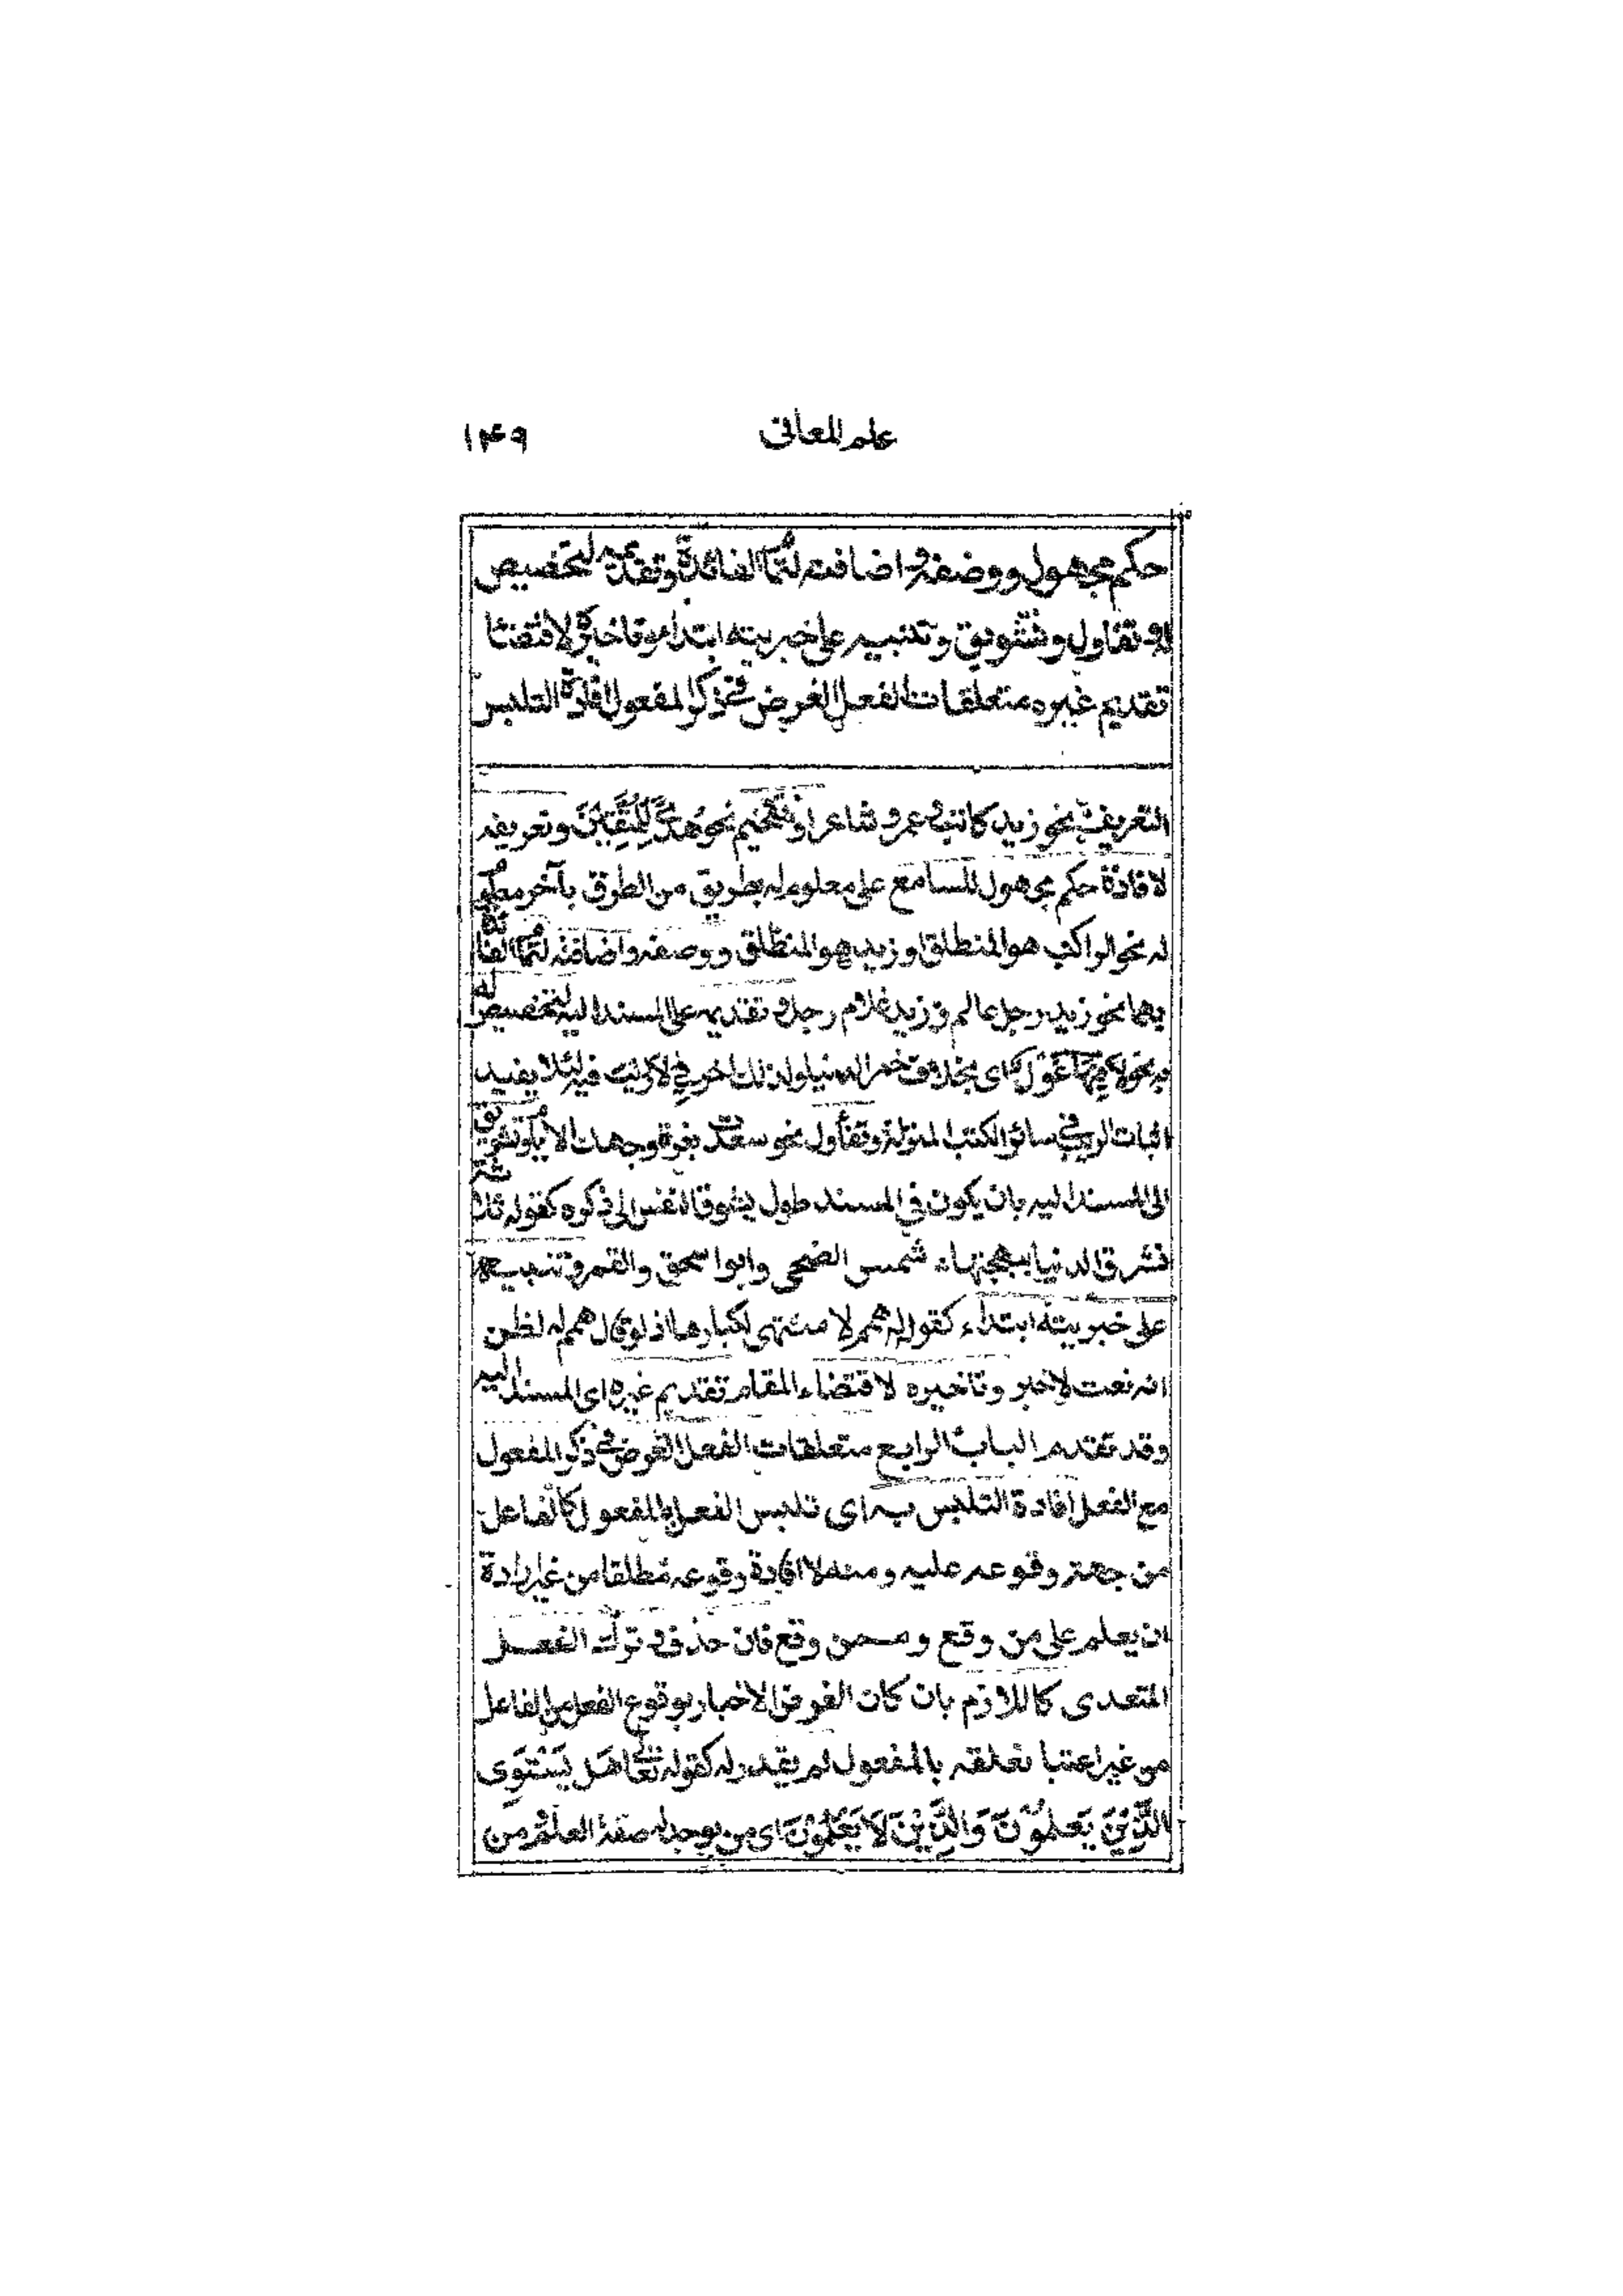 علم المعانى ١٤٩
حكم مجهول ووصفه و اضافته لتمام الفائدة وتقديمه لتخصيص
له وتفاول وتشويق وتنبيه على خبريته ابتداء وتاخيره لاقتضاء
تقديم غيره متعلقات الفعل الغرض فى ذكر المفعول افادة التلبس
التعريف نحو زيد كاتب وعمرو شاعر او تفخيم نحو هُدًى لِّلْمُتَّقِيْنَ وتعريفه
لافادة حكم مجهول للسامع على معلوم له بطريق من الطرق بآخر معلوم
له نحو الراكب هو المنطلق او زيد هو المنطلق ووصفه واضافته لتمام الفائدة
بهما نحو زيد رجل عالم و زيد غلام رجل و تقديمه على المسند اليه لتخصيص له
به نحو لا فِيْهَا غَوْلٌ اى بخلاف خمر الدنيا ولذلك اخر فى لا ريب فيه لئلا يفيد
اثبات الريب فى سائر الكتب المنزلة وتفأول نحو سعدت بغرة وجهك الايام وتشويق
الى المسند اليه بان يكون فى المسند طول يشوق النفس الى ذكره كقوله ثلاثة
تشرق الدنيا ببهجتها ۔ شمس الضحى وابو اسحق والقمر وتنبيه
على خبريته ابتداء كقوله له همم لا منتهى لكبارها اذ لو قال همم له لظن
انه نعت لا خبر وتاخيره لاقتضاء المقام تقديم غيره اى المسند اليه
وقد تقدم الباب الرابع متعلقات الفعل الغرض فى ذكر المفعول
مع الفعل افادة التلبس به اى تلبس الفعل بالمفعول كالفاعل
من جهة وقوعه عليه ومنه لا افادة وقوعه مطلقا من غير ارادة
ان يعلم على من وقع وممن وقع فان حذف و ترك الفعل
المتعدى كاللازم بان كان الغرض الاخبار بوقوع الفعل من الفاعل
من غير اعتبار تعلقه بالمفعول لم يقدر له كقوله تعالى هَل يَسْتَوِى
الَّذِيْنَ يَعلمُوْنَ وَالَّذِيْنَ لَا يَعْلَمُوْنَ اى من يوجد له صفة العلم ومن